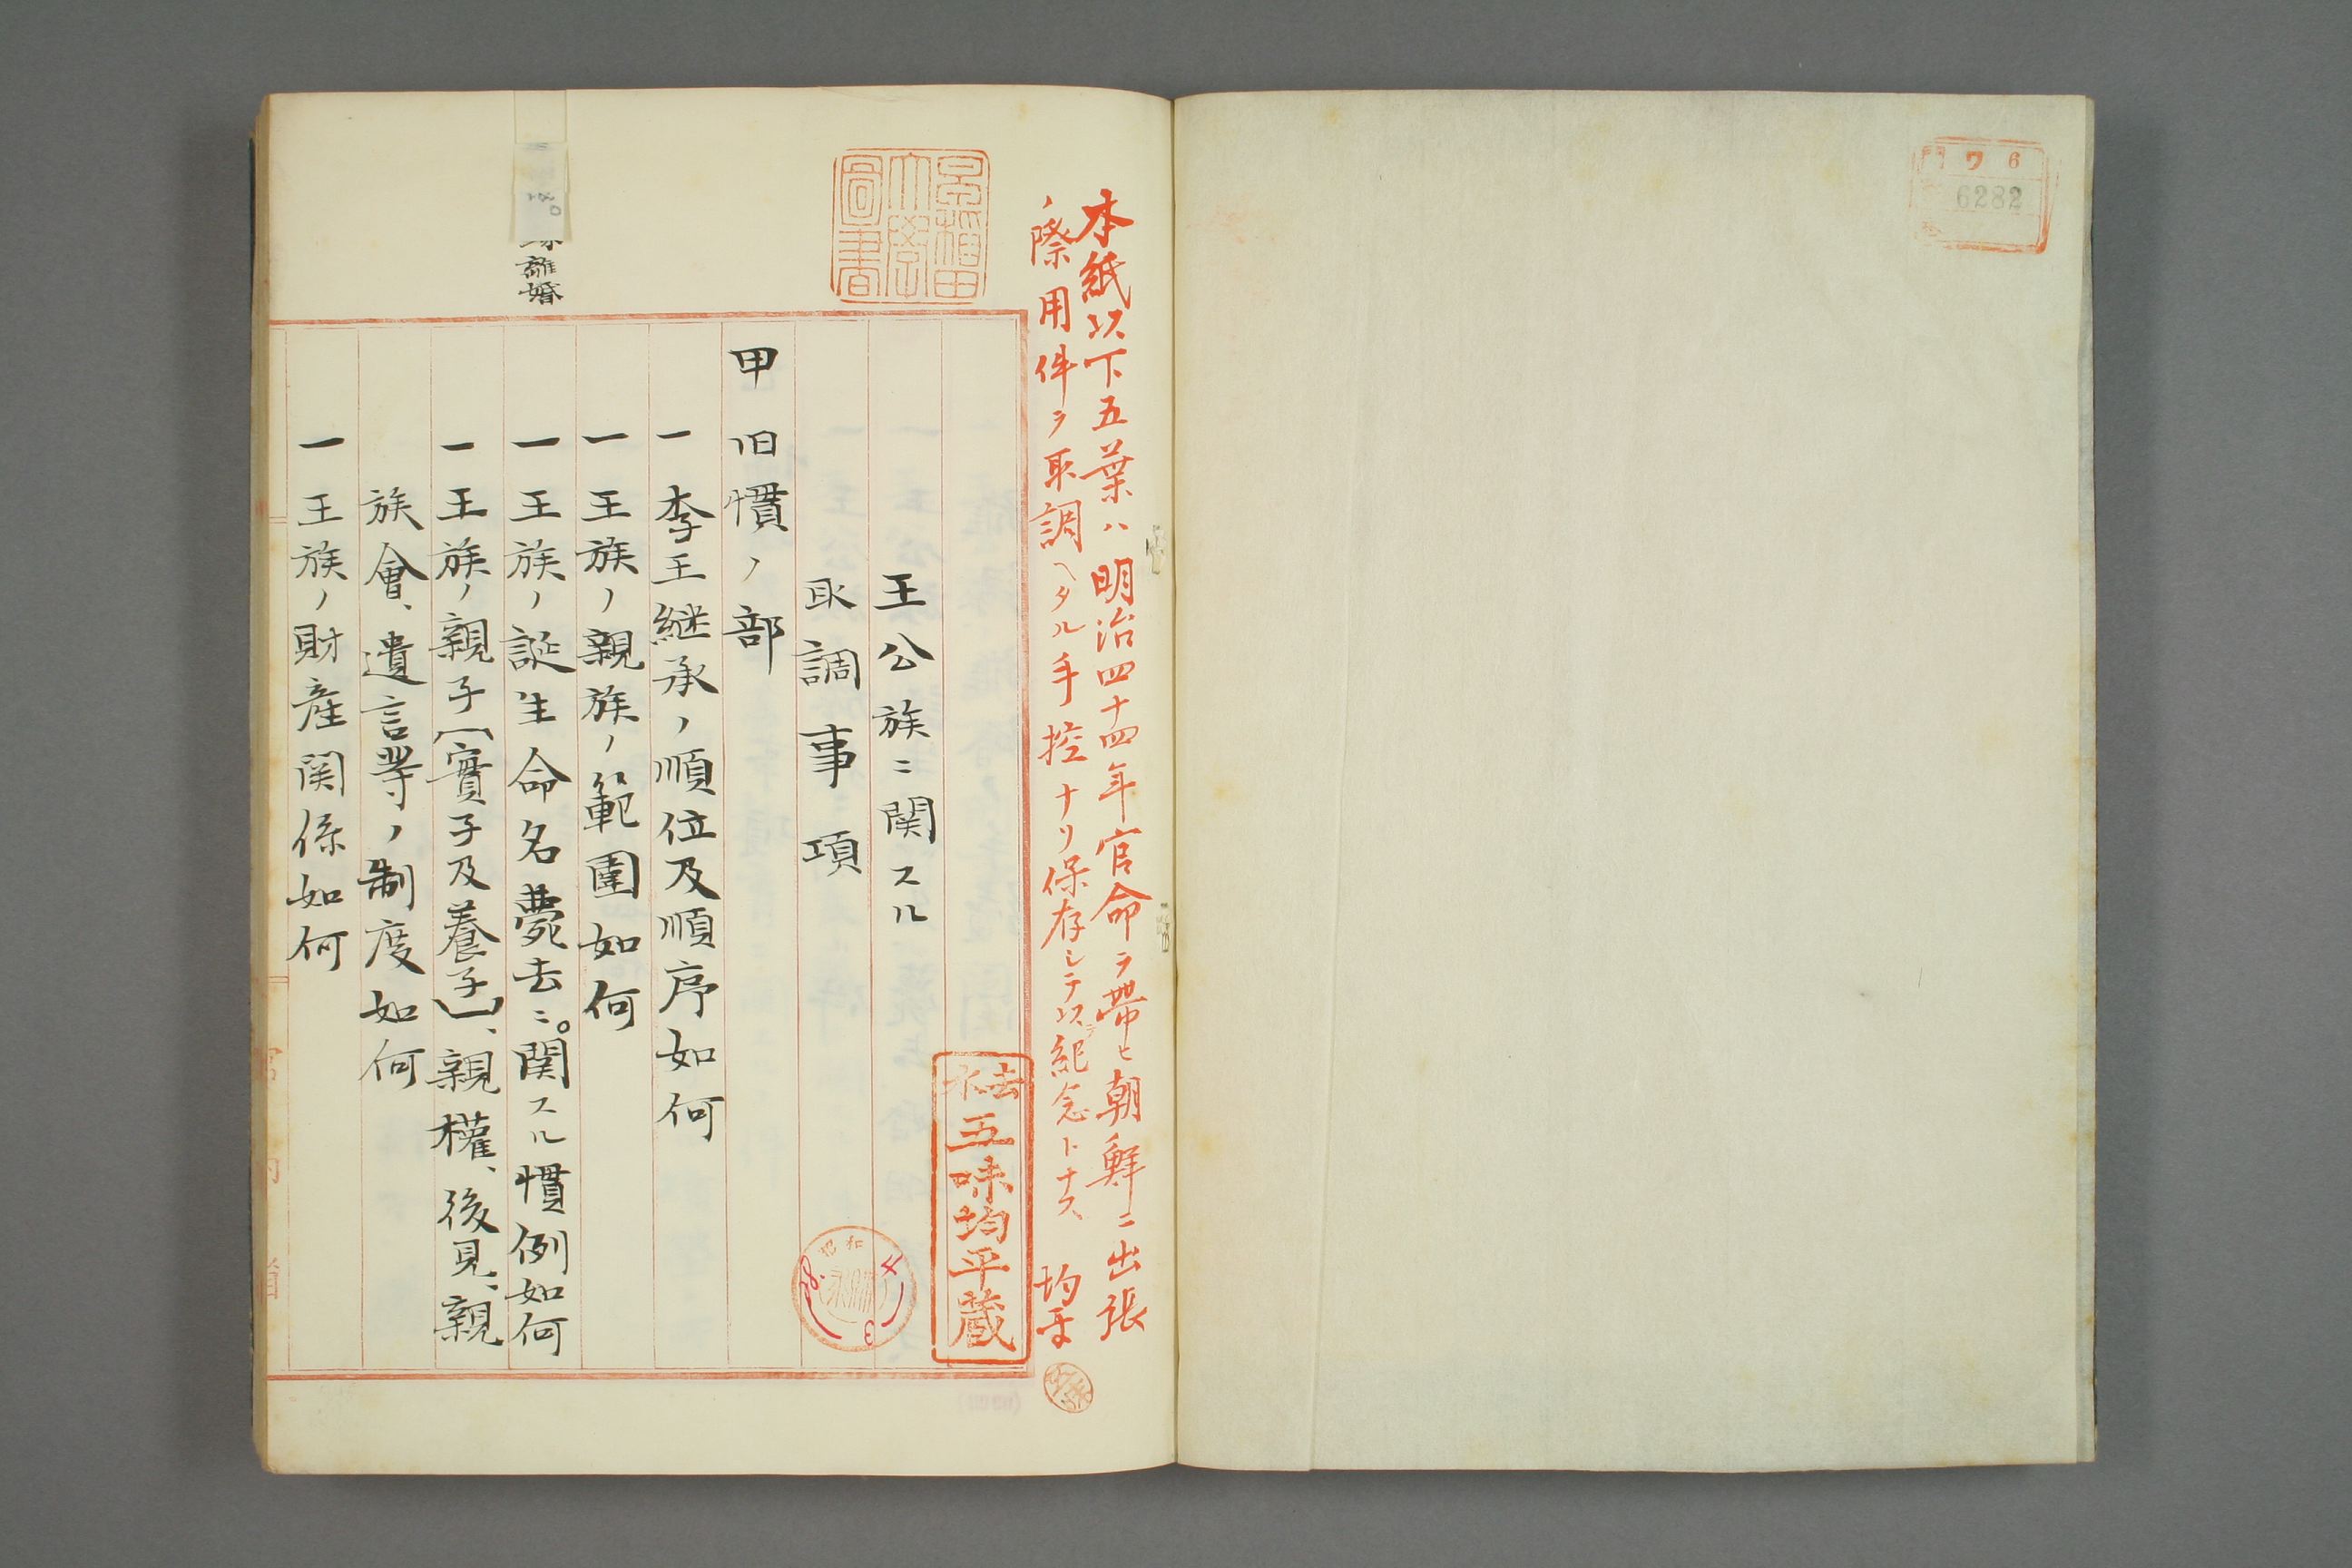 門 ワ 6
6282
本紙以下五葉ハ明治四十四年官命ヲ帯ヒ朝鮮ニ出張
ノ際用件ヲ取調ヘタル手控ナリ保存シテ以テ紀念トナス 均平
早稲田
大學
圖書
五味均平蔵
昭和
王公族ニ関スル
取調事項
甲 旧慣ノ部
一 李王継承ノ順位及順序如何
一 王族ノ親族ノ範圍如何
一 王族ノ誕生命名薨去ニ。関スル慣例如何
離婚
一 王族ノ親子(實子及養子)、親權、後見、親
族會、遺言等ノ制度如何
一 王族ノ財産関係如何
宮内省